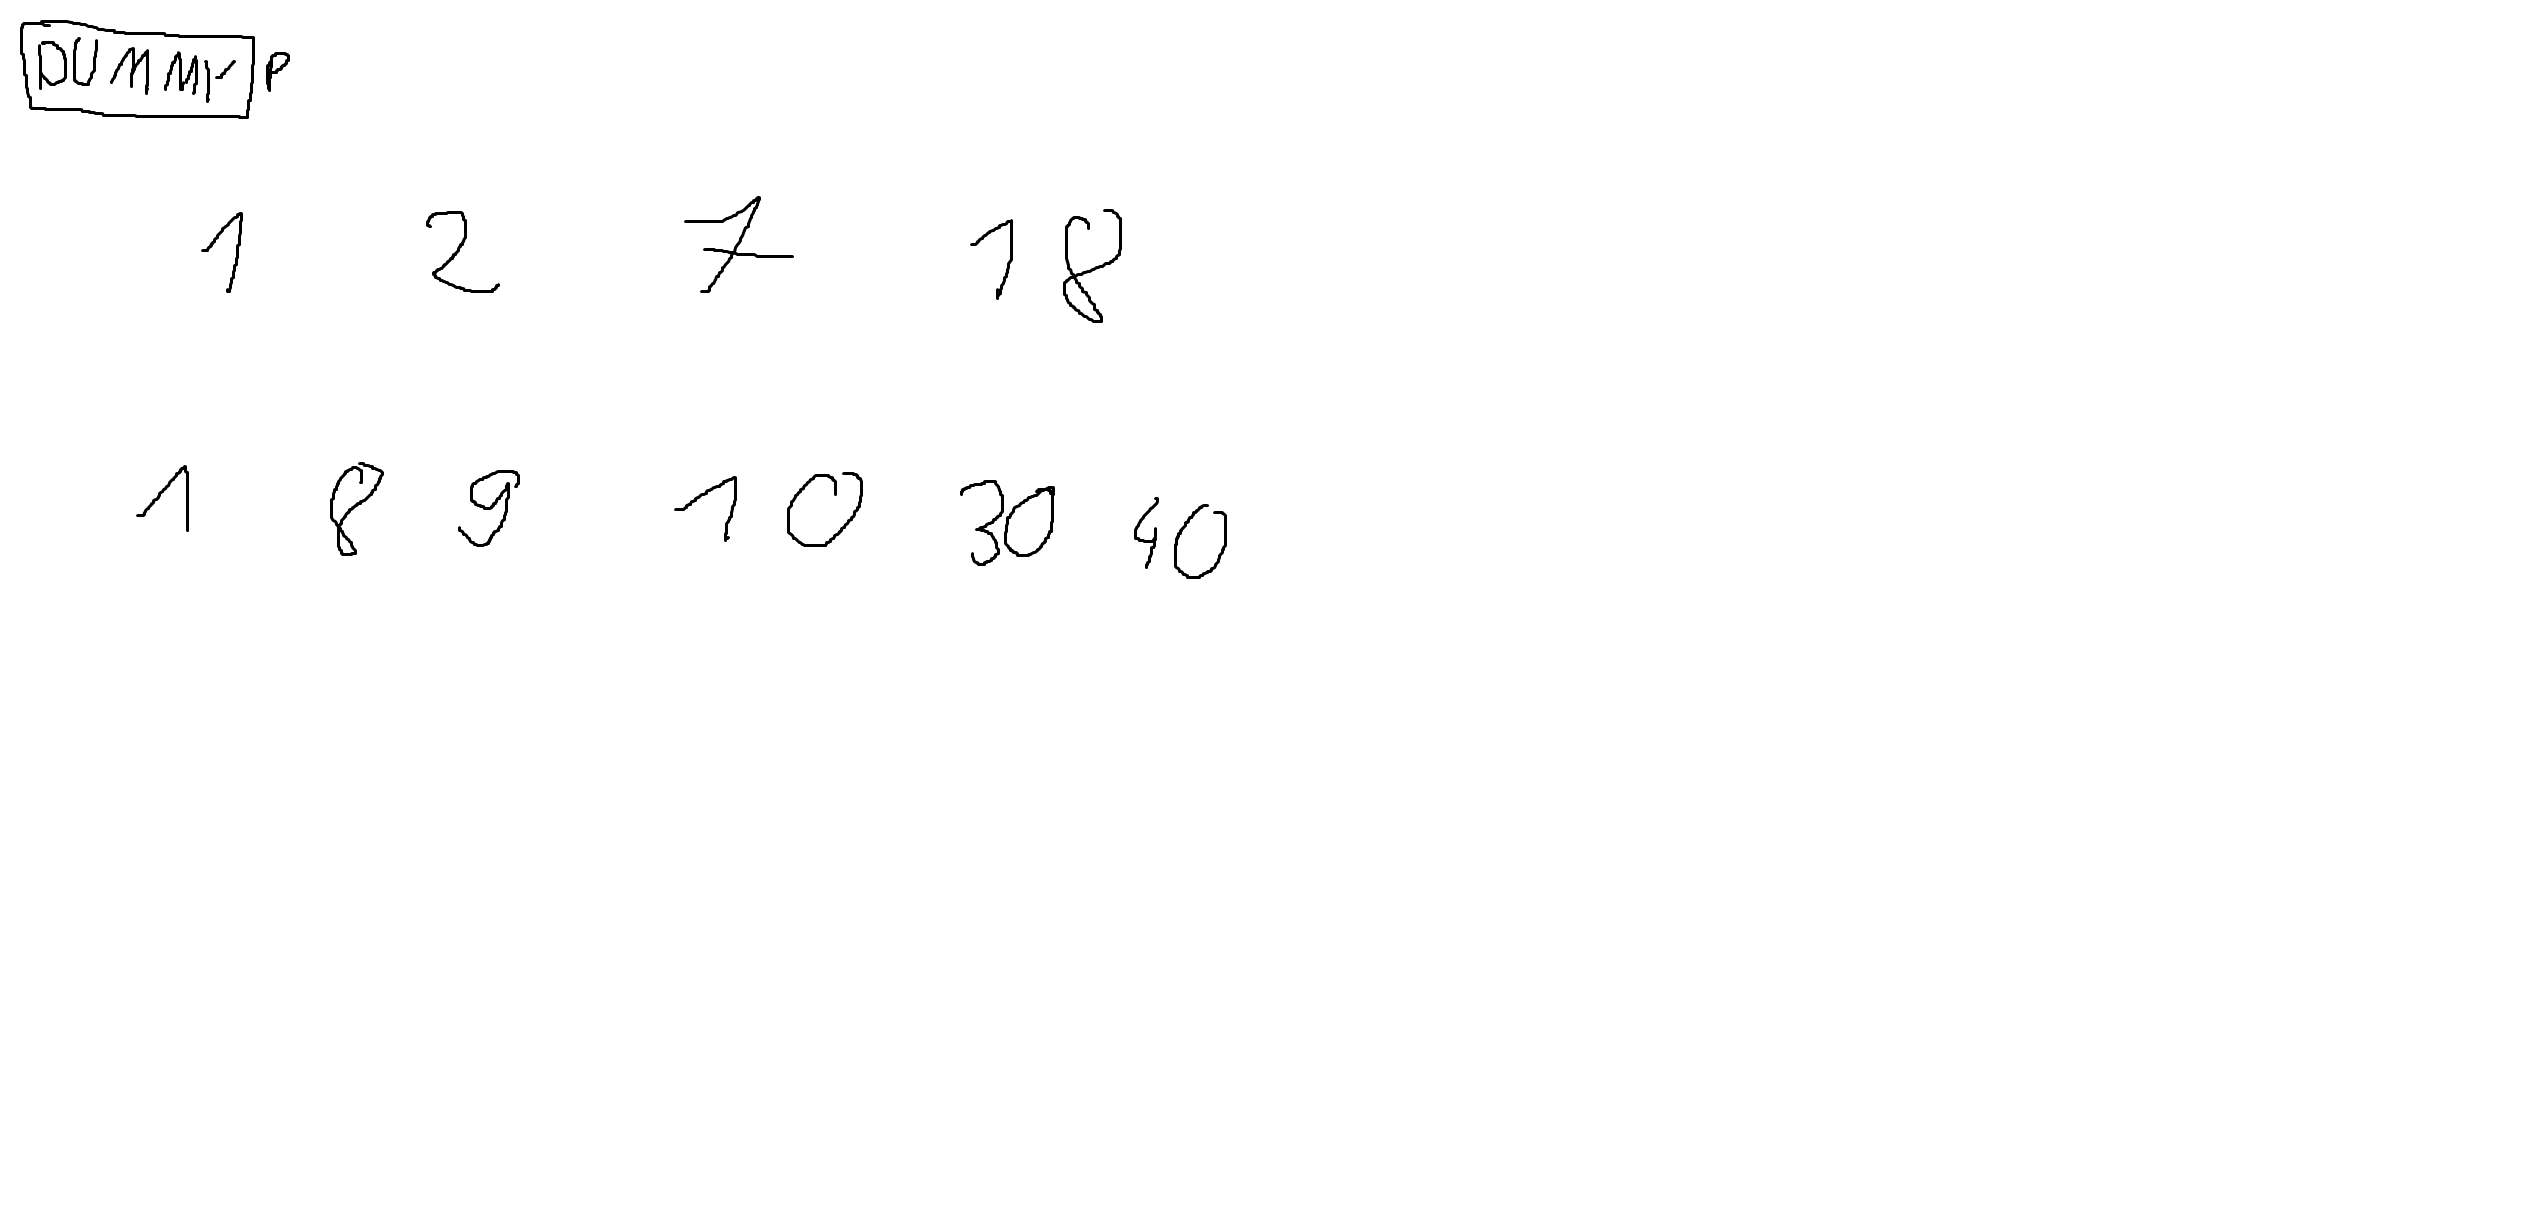 DUMMY P
1 2 7 18
1 8 9 10 30 40